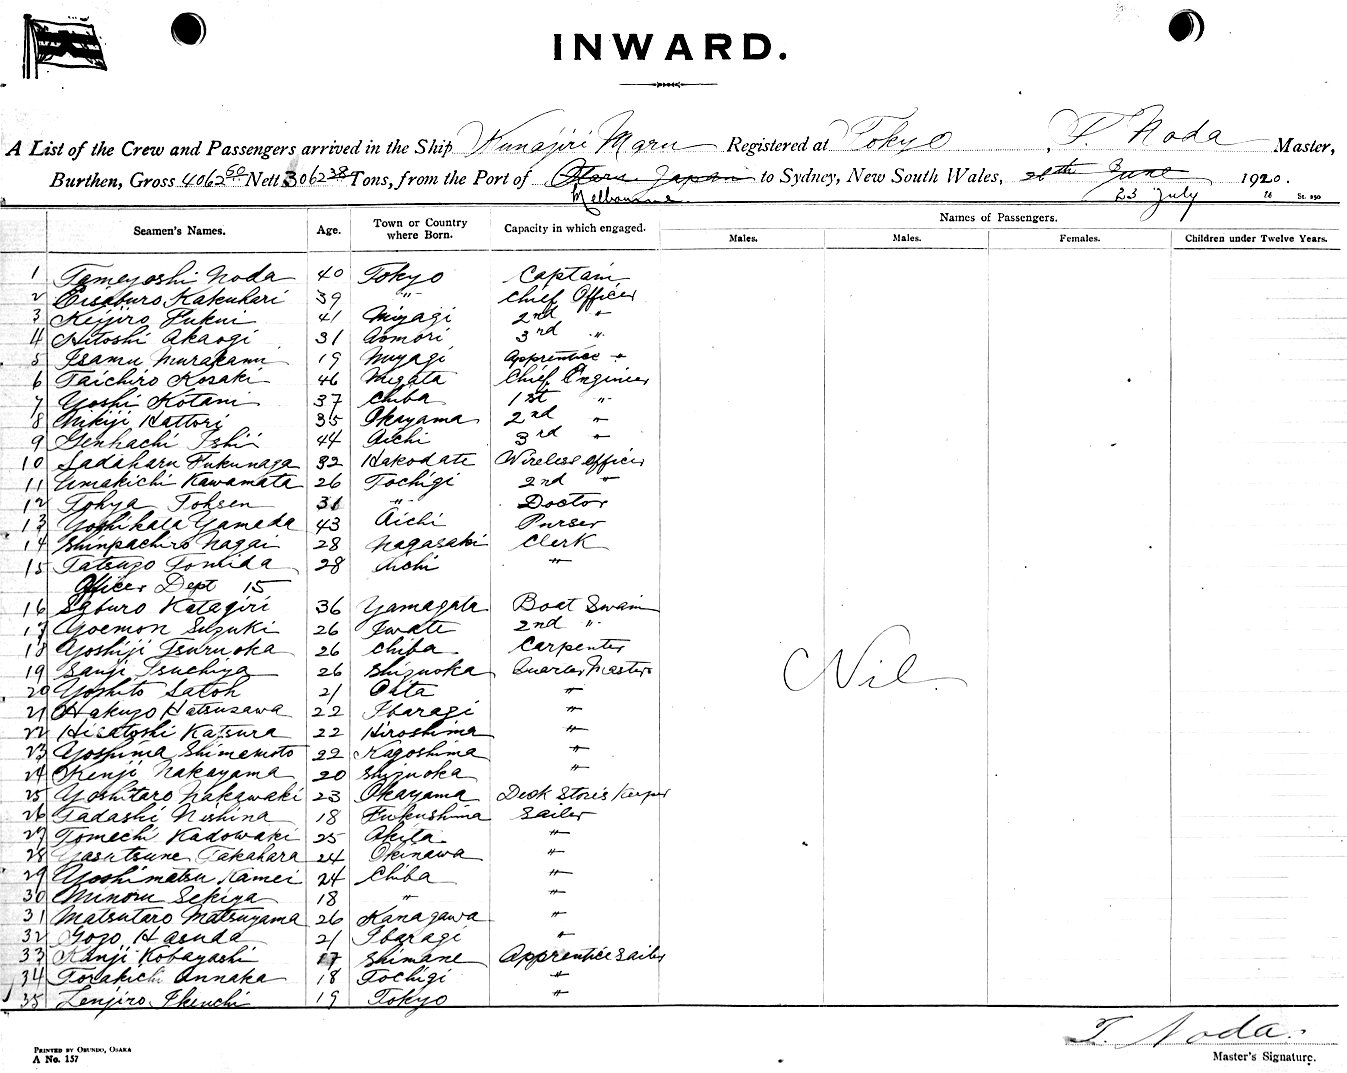 INWARD.
A List of the Crew and Passengers arrived in the Ship Kunajiri Maru Registered at Tokyo, T. Noda Master,
Burthen, Gross 4062 50 Nett 3062 38 Tons, from the Port of Otaru Japan to Sydney, New South Wales, 26th June 1920.
Melbourne 23 July 76 St. 290
Names of Passengers.
Seamen's Names. Age. Town or Country where Born. Capacity in which engaged. Males. Males. Females. Children under Twelve Years.
1 Tameyoshi Noda 40 Tokyo Captain
2 Eisaburo Kakuhari 39 " Chief Officer
3 Keijiro Fukui 41 Miyagi 2nd "
4 Hitoshi Akaogi 31 Aomori 3rd "
5 Isamu Murakami 19 Miyagi Apprentice "
6 Taichiro Kosaki 46 Niigata Chief Engineer
7 Yoshi Kotani 37 Chiba 1st "
8 Mikiji Hattori 35 Okayama 2nd "
9 Genhachi Ishii 44 Aichi 3rd "
10 Sadaharu Fukunaga 32 Hakodate Wireless officer
11 Umakichi Kawamata 26 Tochigi 2nd "
12 Tokya Tohsen 31 " Doctor
13 Yoshikata Yamada 43 Aichi Purser
14 Shinpachiro Nagai 28 Nagasaki Clerk
15 Tatsuzo Tomida 28 Aichi "
Officer Dept 15
16 Saburo Katagiri 36 Yamagata Boat Swain
17 Yoemon Suzuki 26 Iwate 2nd "
18 Yoshiji Tsuruoka 26 Chiba Carpenter
19 Sanji Tsuchiya 26 Shizuoka Quarter Master
20 Yoshito Satoh 21 Oita "
21 Hakuzo Hatsuzawa 22 Ibaragi "
22 Hisatoshi Katsura 22 Hiroshima "
23 Yoshima Shimemoto 22 Kagoshima "
24 Kenji Nakayama 20 Shizuoka "
25 Yoshitaro Nakawaki 23 Okayama Deck Stores Keeper
26 Tadashi Nishina 18 Fukushima Sailer
27 Tomechi Kadowaki 25 Akita "
28 Yasutsune Takahara 24 Okinawa "
29 Yoshimatsu Kamei 24 Chiba "
30 Minoru Sekiya 18 " "
31 Matsutaro Matsuyama 26 Kanagawa "
32 Gozo Hasuda 21 Ibaragi "
33 Kanji Kobayashi 17 Shimane Apprentice Sailer
34 Torakichi Annaka 18 Tochigi "
35 Zenjiro Ikeuchi 19 Tokyo "
Nil.
T. Noda.
Master's Signature.
PRINTED BY OBUNDO, OSAKA
A No. 157